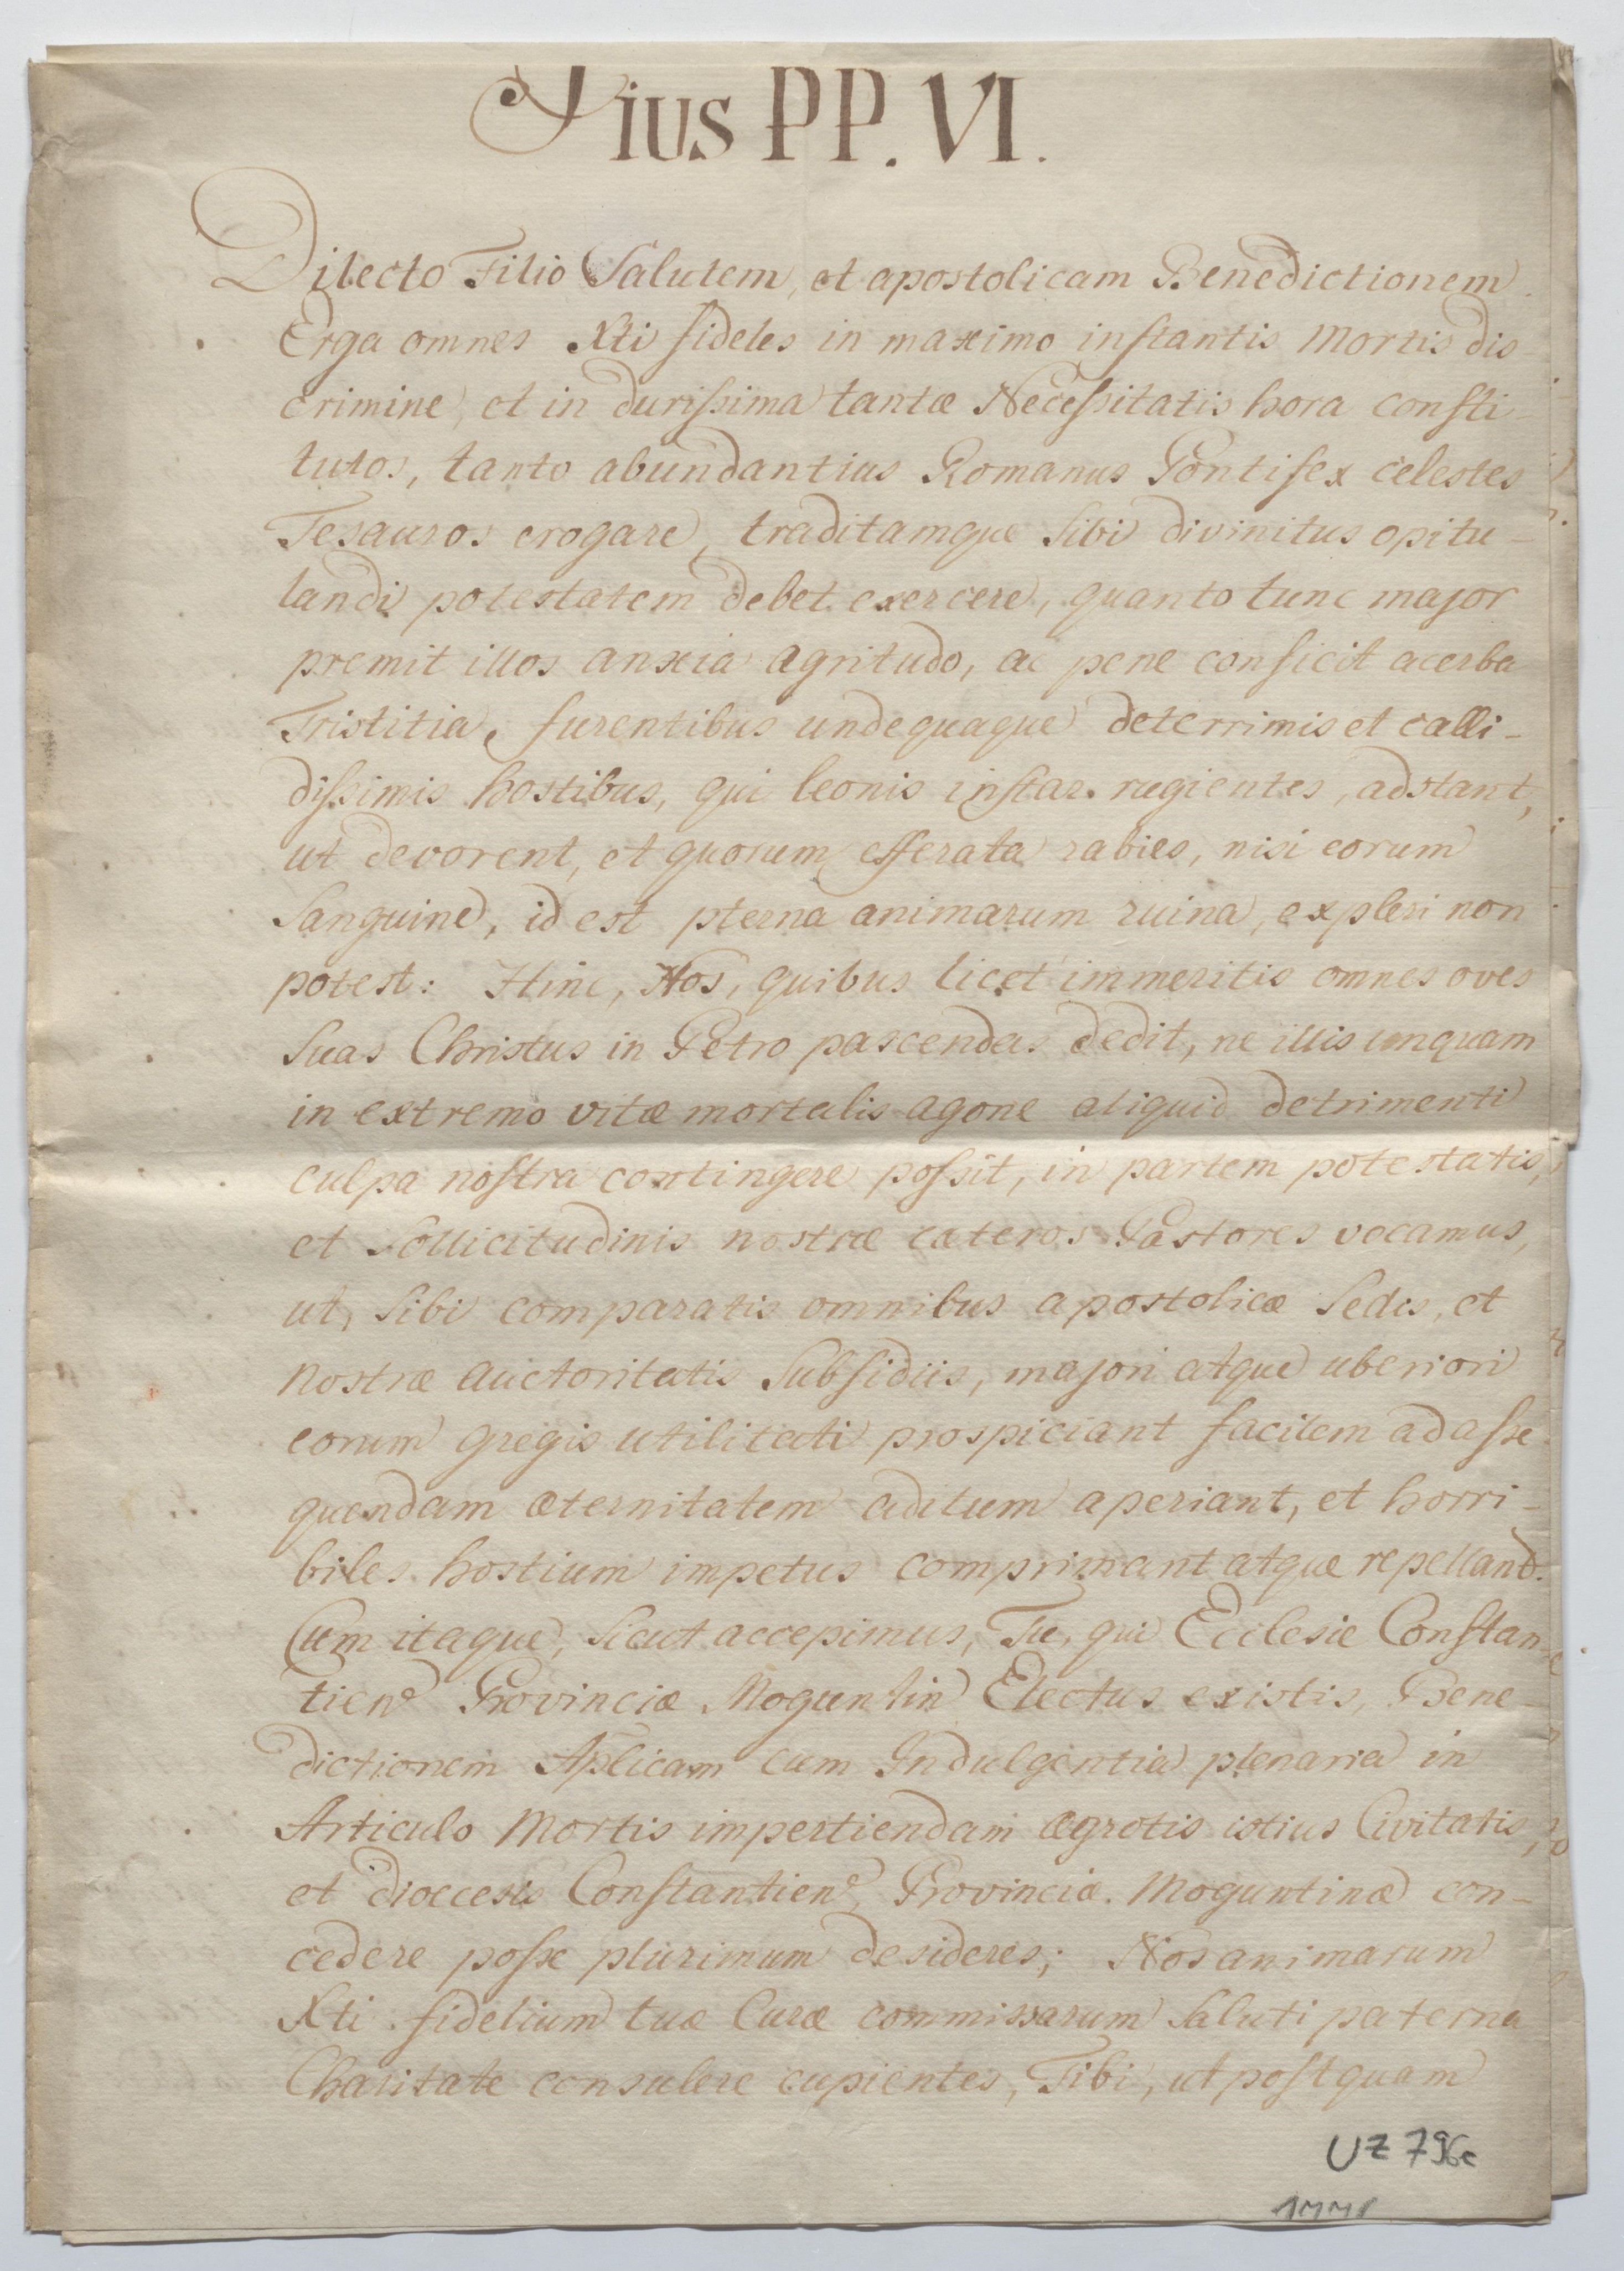 Pius PP. VI.
Dilecto Filio Salutem, et apostolicam Benedictionem.
Erga omnes Xti fideles in maximo instantis Mortis dis-
crimine, et in durissima tantæ Necessitatis hora consti-
tutos, tanto abundantius Romanus Pontifex celestes
Tesauros erogare, traditamque sibi divinitus opitu-
landi potestatem debet exercere, quanto tunc major
premit illos anxia ægritudo, ac pene conficit acerba
Tristitia, furentibus undequaque deterrimis et calli-
dissimis hostibus, qui leonis instar rugientes, adstant,
ut devorent, et quorum efferata rabies, nisi eorum
Sanguine, id est pterna animarum ruina, expleri non
potest: Hinc, Nos, quibus licet immeritis omnes oves
Suas Christus in Petro pascendas dedit, ne illis unquam
in extremo vitæ mortalis agone aliquid detrimenti
culpa nostra contingere possit, in partem potestatis,
et sollicitudinis nostræ cæteros Pastores vocamus,
ut, Sibi comparatis omnibus apostolicæ Sedis, et
nostræ auctoritatis Subsidiis, majori atque uberiori
eorum gregis utilitati prospiciant facilem ad asse
quendam æternitatem aditum aperiant, et horri-
biles hostium impetus comprimant atque repellant.
Cum itaque, sicut accepimus, Tu, qui Ecclesiæ Constan-
tiene Provinciæ Moguntin Electus existis, Bene-
dictionem Aplicam cum Indulgentia plenaria in
Articulo Mortis impertiendam ægrotis istius Civitatis,
et Dioecesis Constantiene, Provinciæ Moguntinæ con-
cedere posse plurimum desideres; Nos animarum
Xti fidelium tuæ Curæ commissarum Saluti paterna
Charitate consulere cupientes, Tibi, ut postquam
UZ 796c